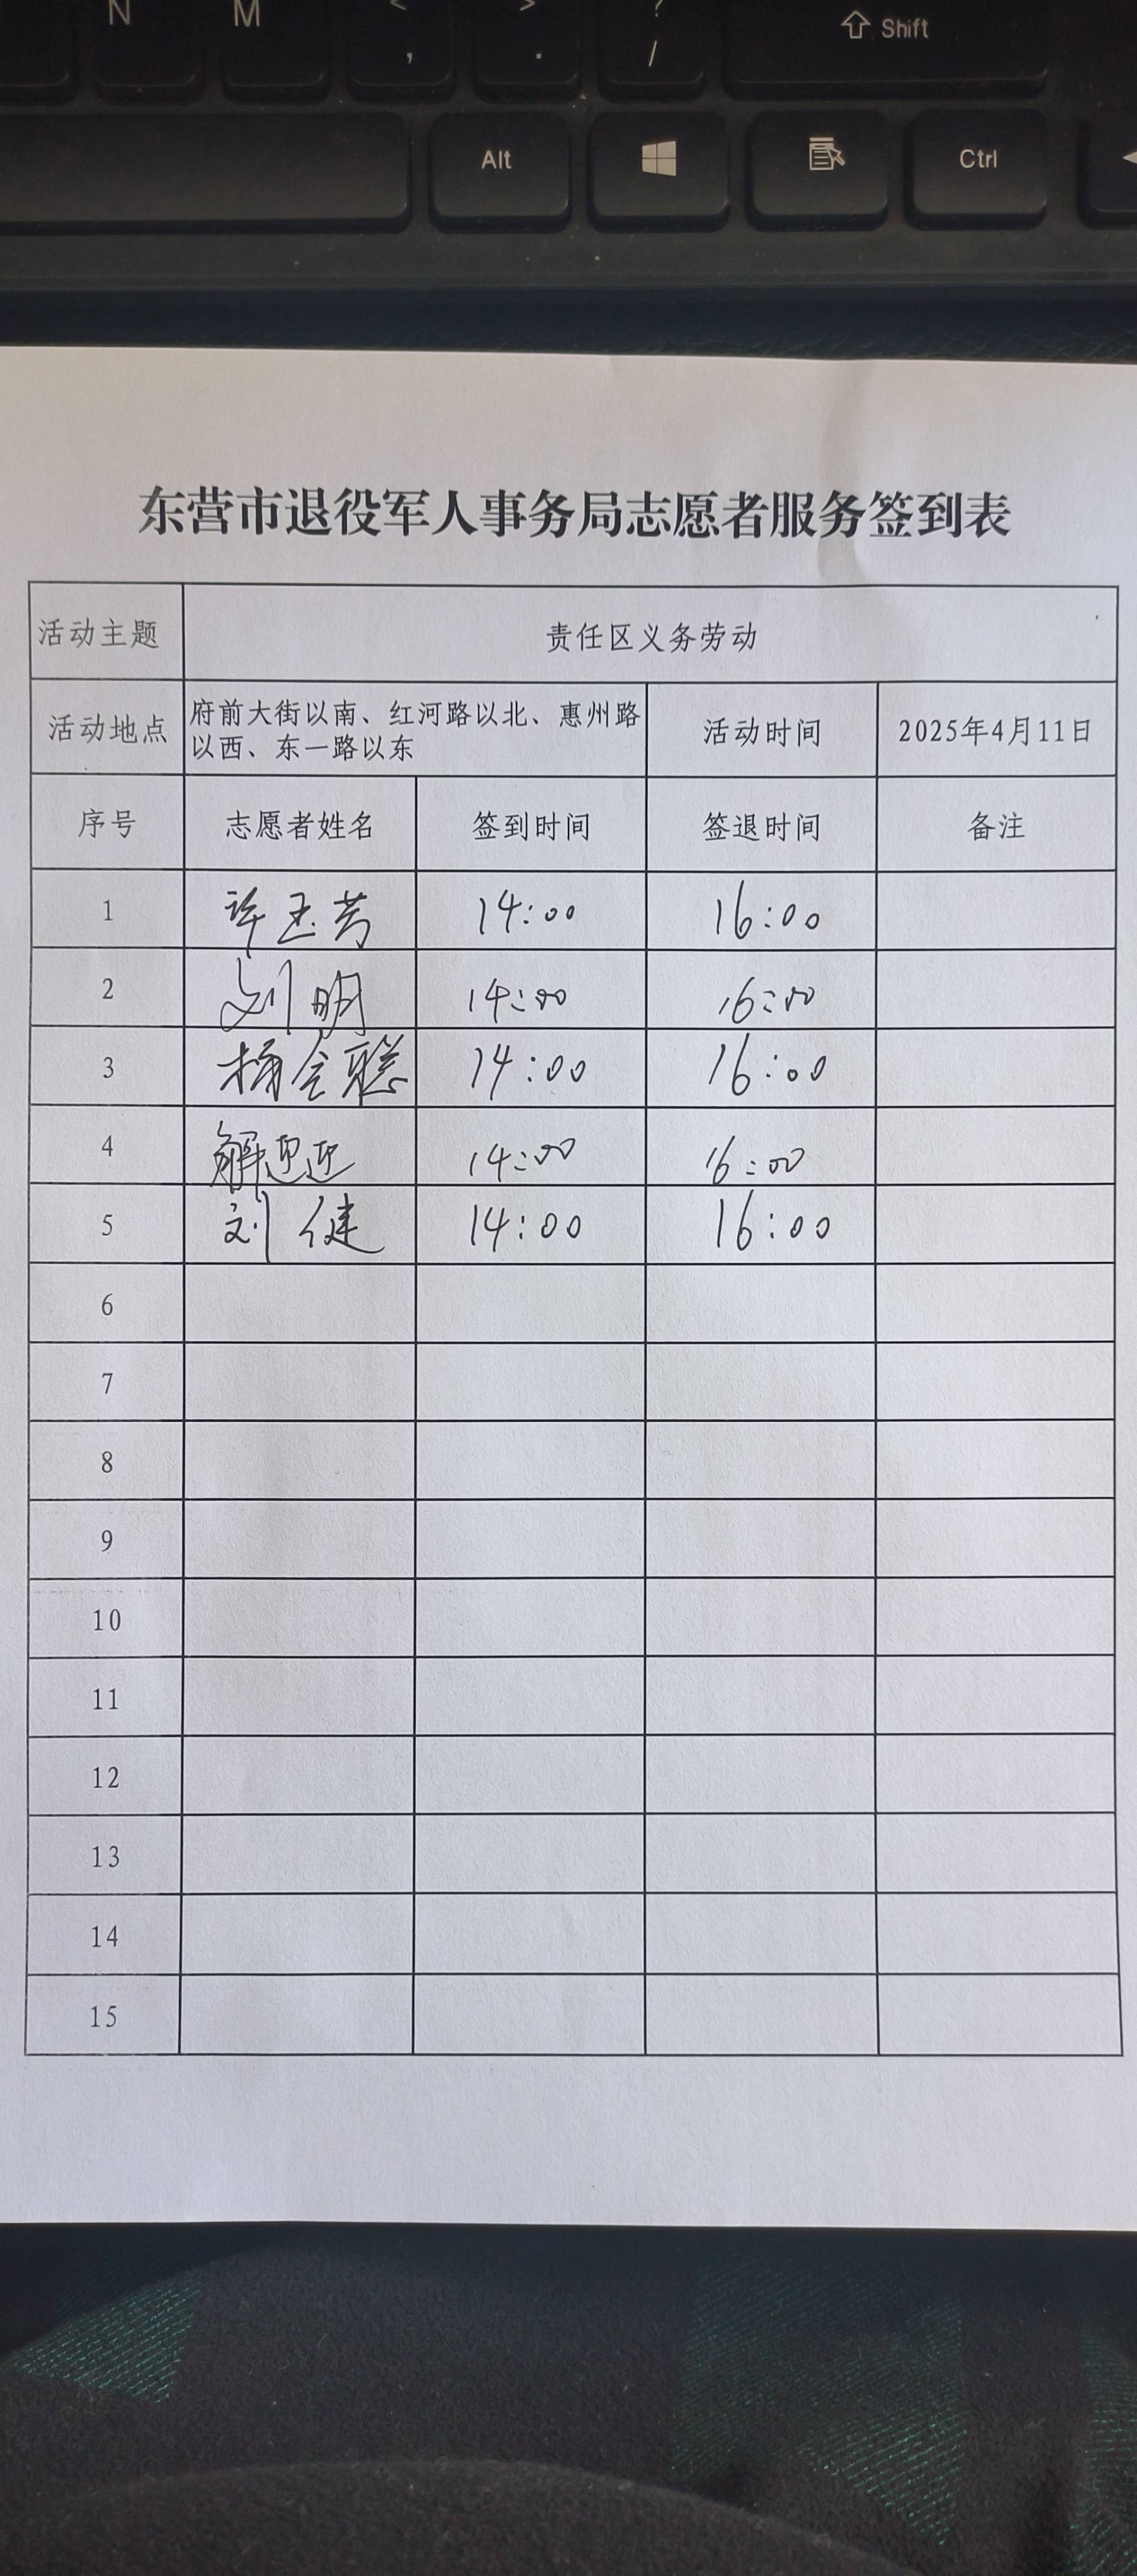 N M < , > . ? / Shift
Alt Ctrl
东营市退役军人事务局志愿者服务签到表
活动主题 责任区义务劳动
活动地点 府前大街以南、红河路以北、惠州路
以西、东一路以东 活动时间 2025年4月11日
序号 志愿者姓名 签到时间 签退时间 备注
1 许玉芳 14:00 16:00
2 刘明 14:00 16:00
3 14:00 16:00
4 解迎迎 14:00 16:00
5 刘健 14:00 16:00
6
7
8
9
10
11
12
13
14
15